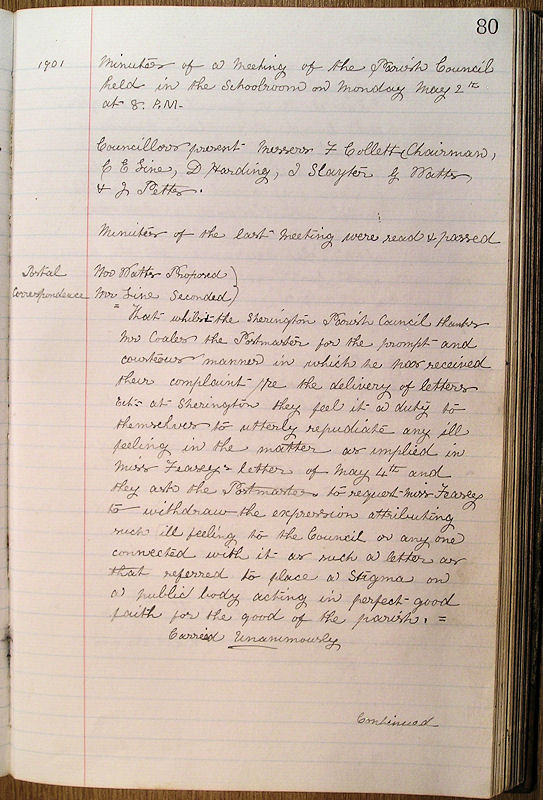 80
1901 Minutes of a Meeting of the Parish Council
held in the Schoolroom on Monday May 2th
at 8. P.M.
Councillors present Messers F Collett (Chairman,
C E Line, D Harding, J Slayter G Watts,
& J Petts.
Minutes of the last Meeting were read & passed
Postal Correspondence
Mr Watts Proposed
Mr Line Seconded
"That whilst the Sherington Parish Council thanks
Mr Coales the Postmaster for the prompt and
courteous manner in which he has received
their complaint re the delivery of letters
Ect at Sherington they feel it a duty to
themselves to utterly repudiate any ill
feeling in the matter as implied in
Miss Feasey's letter of May 4th and
they ask the Postmaster to request Miss Feasey
to withdraw the expression attributing
such ill feeling to the Council or any one
connected with it as such a letter as
that referred to place a Stigma on
a public body acting in perfect good
faith for the good of the parish. =
Carreed Unanimously
Continued